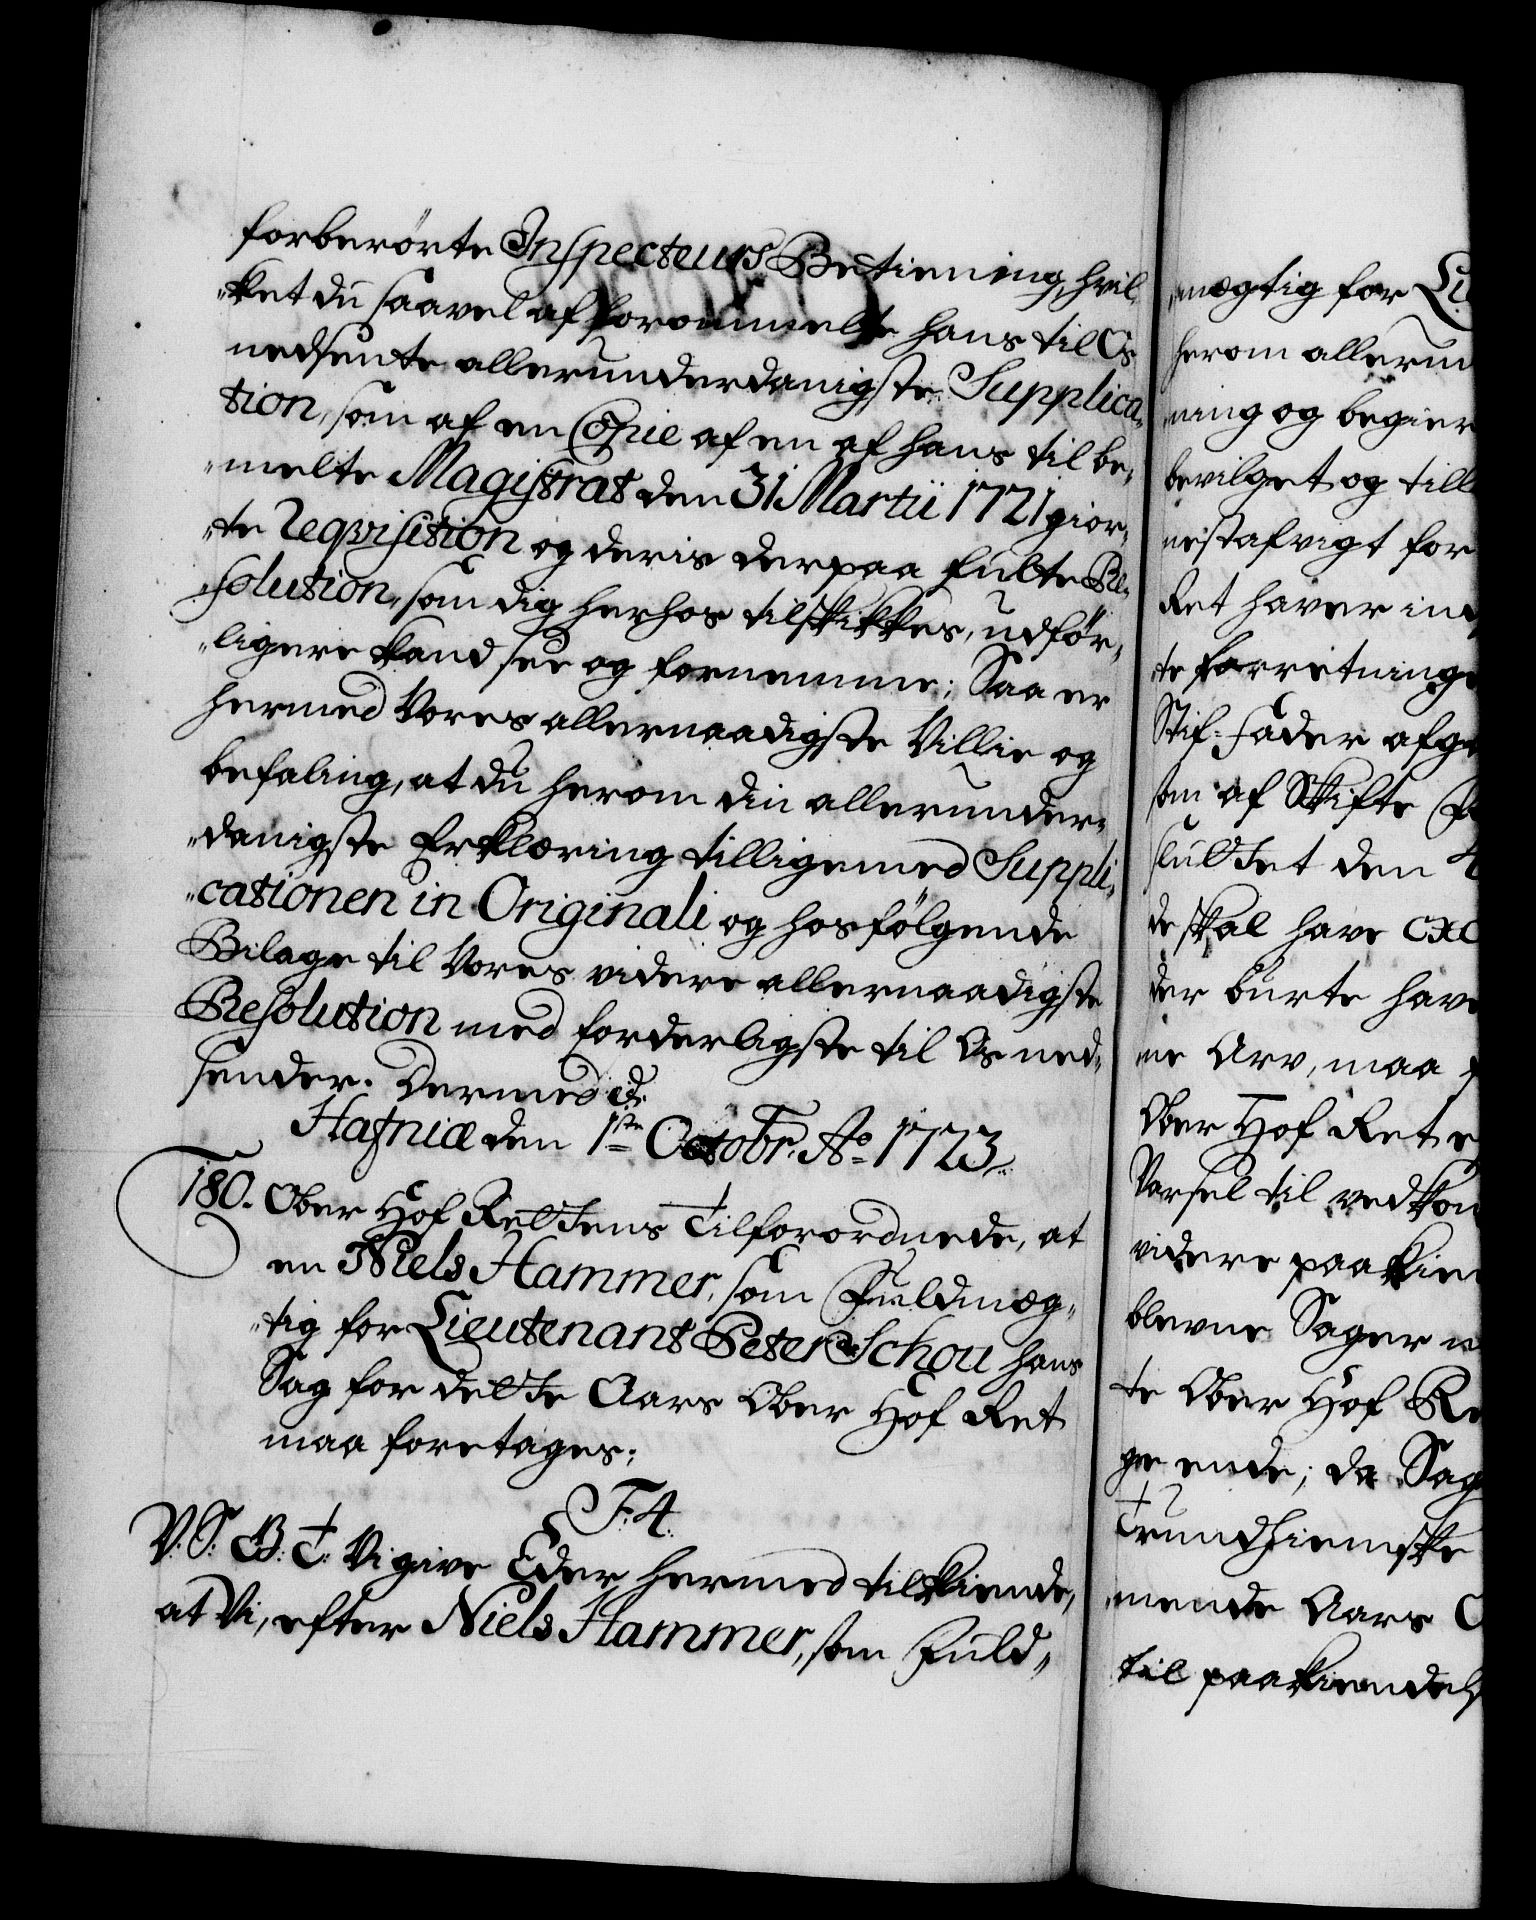 forberörte Inspecteurs Betiening, hvil„
„ket du saavel af forommelte hans til Os
nedsente allerunderdanigste Supplica„
tion, som af en Copie af en af hans til be„
„melte Magistrat den 31 Martii 1721 gior„
„te Reqvisition og deris derpaa fulte Re„
„solution, som dig herhos tilskikkes, udför„
„ligere kand see og fornemme; Saa er
hermed Vores allernaadigste Villie og
befaling, at du herom din allerunder„
„danigste Erklæring tilligemed Suppli„
„cationen in Originali og hosfölgende
Bilage til Vores videre allernaadigste
Resolution med forderligste til Os ned„
sender. Dermed &c.
Hafniæ den 1ste Octobr. Ao 1723.
180. Ober Hof Rettens Tilforordnede, at
en Niels Hammer, som Fuldmæg„
„tig for Lieutenant Peter Schou hans
Sag for dette Aars Ober Hof Ret
maa foretages;
F. 4.
V. S. G. T. Vi give Eder hermed tilkiende,
at Vi, efter Niels Hammer, som Fuld„
„mægtig for
herom allerun
ning og begier
bevilget og till
nestafvigt for
Ret haver
te forretning
Stif-Fader afg
som af Skifte
sluttet den
de skal have
der burte have
ne Arv, maa
Ober Hof Ret
Varsel til vedkom
videre paakien
blevne Sager
te Ober Hof
ende; da Sag
Trundhiemske
mende Aars
til paakiendels